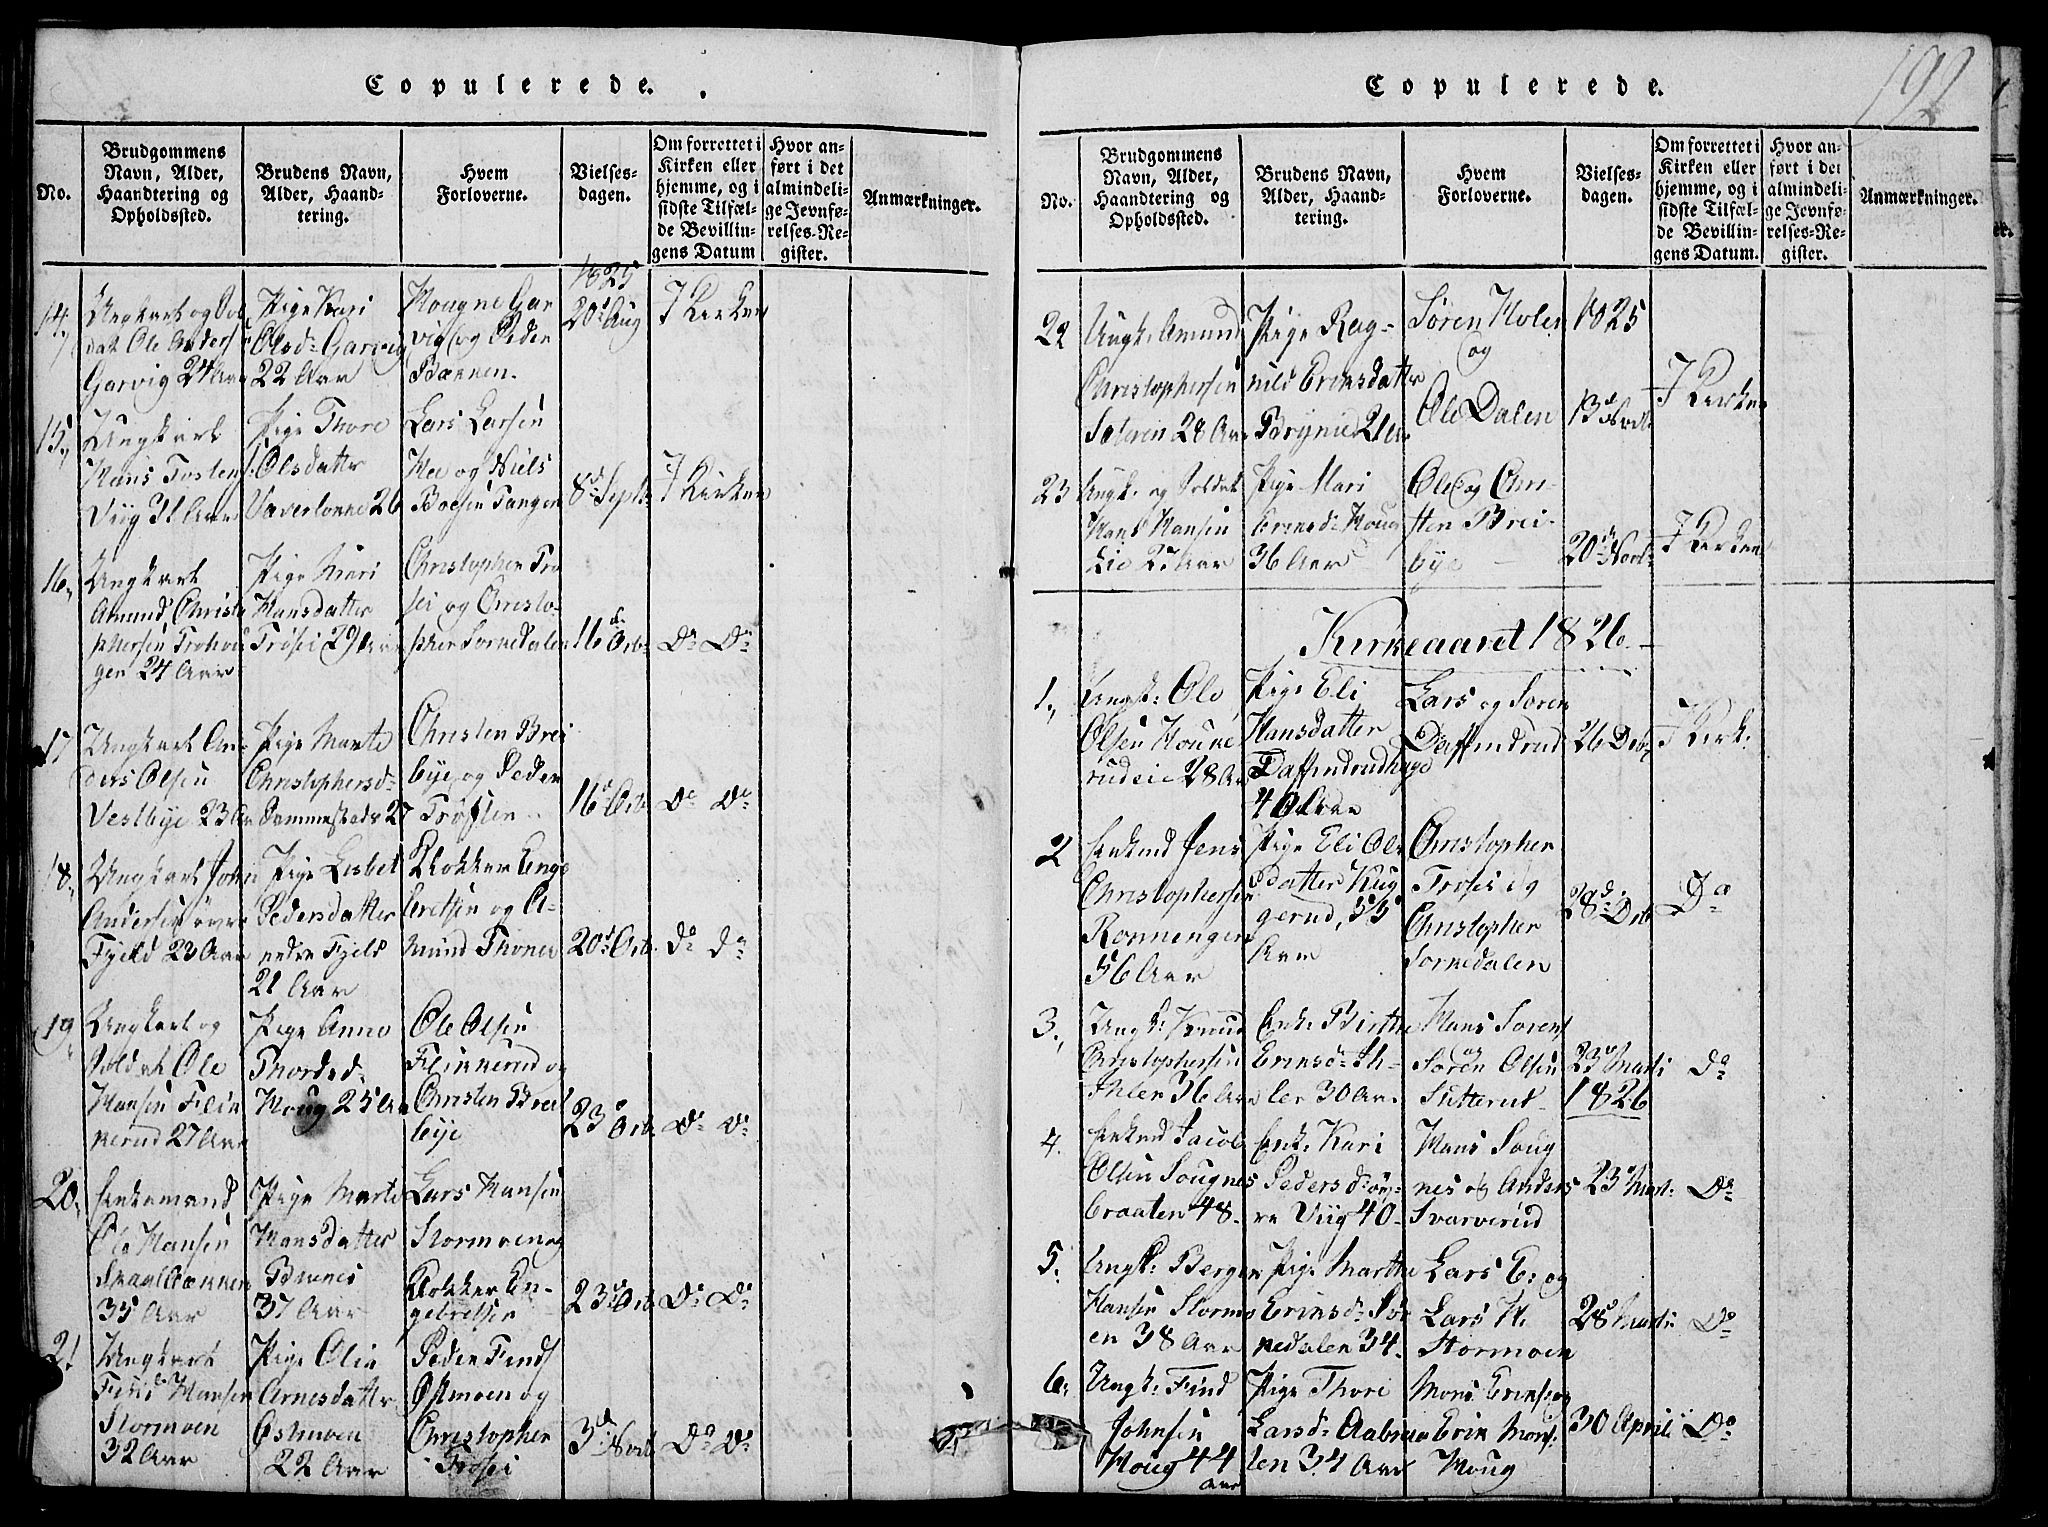 Copulerede.
No.
Brudgommens Navn, Alder, Haandtering og Opholdssted.
Brudens Navn, Alder, Haandtering.
Hvem Forloverne.
Vielsesdagen.
Om forrettet i Kirken eller hjemme, og i sidste Tilfælde Bevillingens Datum
Hvor anført i det almindelige Jevnførelses-Register.
Anmærkninger.
1825
14, Ungkarl og Soldat Ole Anders: Garvig 24 Aar
Pige Kari Olsd: Garvig 22 Aar
Hougne Garvig og Peder Bakken.
20d Aug
I Kirken
15, Ungkarl Hans Tosten: Viig 31 Aar
Pige Thore Olsdatter 26
Lars Larsen og Niels Boesen Tangen
8d Septr
I Kirken
16, Ungkarl Amund Christophersen 24 Aar
Pige Mari Hansdatter Trosei 29
Christopher Trosei og Christopher Sorkedalen
16d Octbr
Do Do
17 Ungkarl Anders Olsen Vestbye 23 Aar
Pige Marte Christophersd: 27
Christen Breibye og Peder
16d Octb
Do Do
18, Ungkarl John Andersen øvre Fjeld 23 Aar
Pige Lisbet Pedersdatter nedre Fjeld 21 Aar
Klokker Engebretsen og Amund Thonen
20d Octb.
Do Do
19 Ungkarl og Soldat Ole Hansen Flinkerud 27 Aar
Pige Anne Thordsd: Houg 25 Aar
Ole Olsen Flinkerud og Christen Breibye
23d Octb.
Do Do
20, Enkemand Ole Hansen 35 Aar
Pige Marte Hansdatter 37 Aar
Lars Hansen Stormoen og Klokker Engebretsen
23d Octb.
Do Do
21 Ungkarl Find Hansen Stormoen 32 Aar
Pige Olia Arnesdatter Østmoen 22 Aar
Peder Finds: Østmoen og Christopher Trosei
3d Novb
Do Do
192
Copulerede.
No.
Brudgommens Navn, Alder, Haandtering og Opholdssted.
Brudens Navn, Alder, Haandtering.
Hvem Forloverne.
Vielsesdagen.
Om forrettet i Kirken eller hjemme, og i sidste Tilfælde Bevillingens Datum.
Hvor anført i det almindelige Jevnførelses-Register.
Anmærkninger.
22 Ungk: Amund Christophersen Sæteren 28 Aar
Pige Ragnild Eriksdatter 21
Søren Holen og Ole Dalen
1825
13d Novb.
I Kirken
23 Ungk: og Soldat Hans Hansen Lie 27 Aar
Pige Mari Eriksd: Houg 36 Aar
Ole og Christen Breibye
20de Novb:
I Kirken
Kirkeaaret 1826.
1., Ungk: Ole Olsen 28 Aar
Pige Eli Hansdatter Daffindrudhage 40 Aar
Lars og Soren Daffindrud
26 Decb.
I Kirk:
2 Enkemd Jens Christophersen Ronningen 56 Aar
Pige Eli Olsdatter Kuggerud, 55 Aar
Christopher Trosei og Christopher Sorkedalen
28d Dcb
Do
3., Ungk: Knud Christophersen Ihlen 36 Aar
Enk: Birthe Eriksd: Ihlen 30 Aar
Hans Sorens: og Soren Olsen Sutterud
23d Marti 1826
Do
4. Enkemd Jacob Olsen Sougnesbraaten 48.
Enk: Kari Pedersd: øvre Viig 40
Hans Sougnes og Anders Svarverud
23d Mart:
Do
5. Ungk: Bergen Hansen Stormoen 38 Aar
Pige Marthe Eriksd: Sorkedalen 34.
Lars E: og Lars H. Stormoen
28d Martii
Do
6, Ungk: Find Johnsen Houg 44 Aar
Pige Thore Larsd: 34 Aar
Mons Eriks: og Erik Mons: Houg
30 April
Do